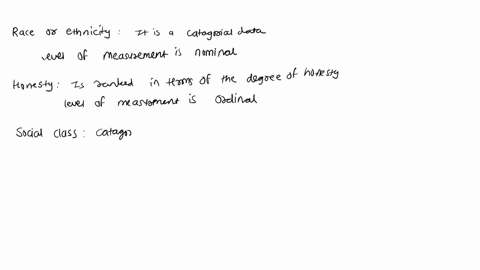 Race or ethnicity : It is a catagorial data
level of measurement is nominal
Honesty : Is ranked in terms of the degree of honesty
level of measurement is ordinal
Social class : catagor